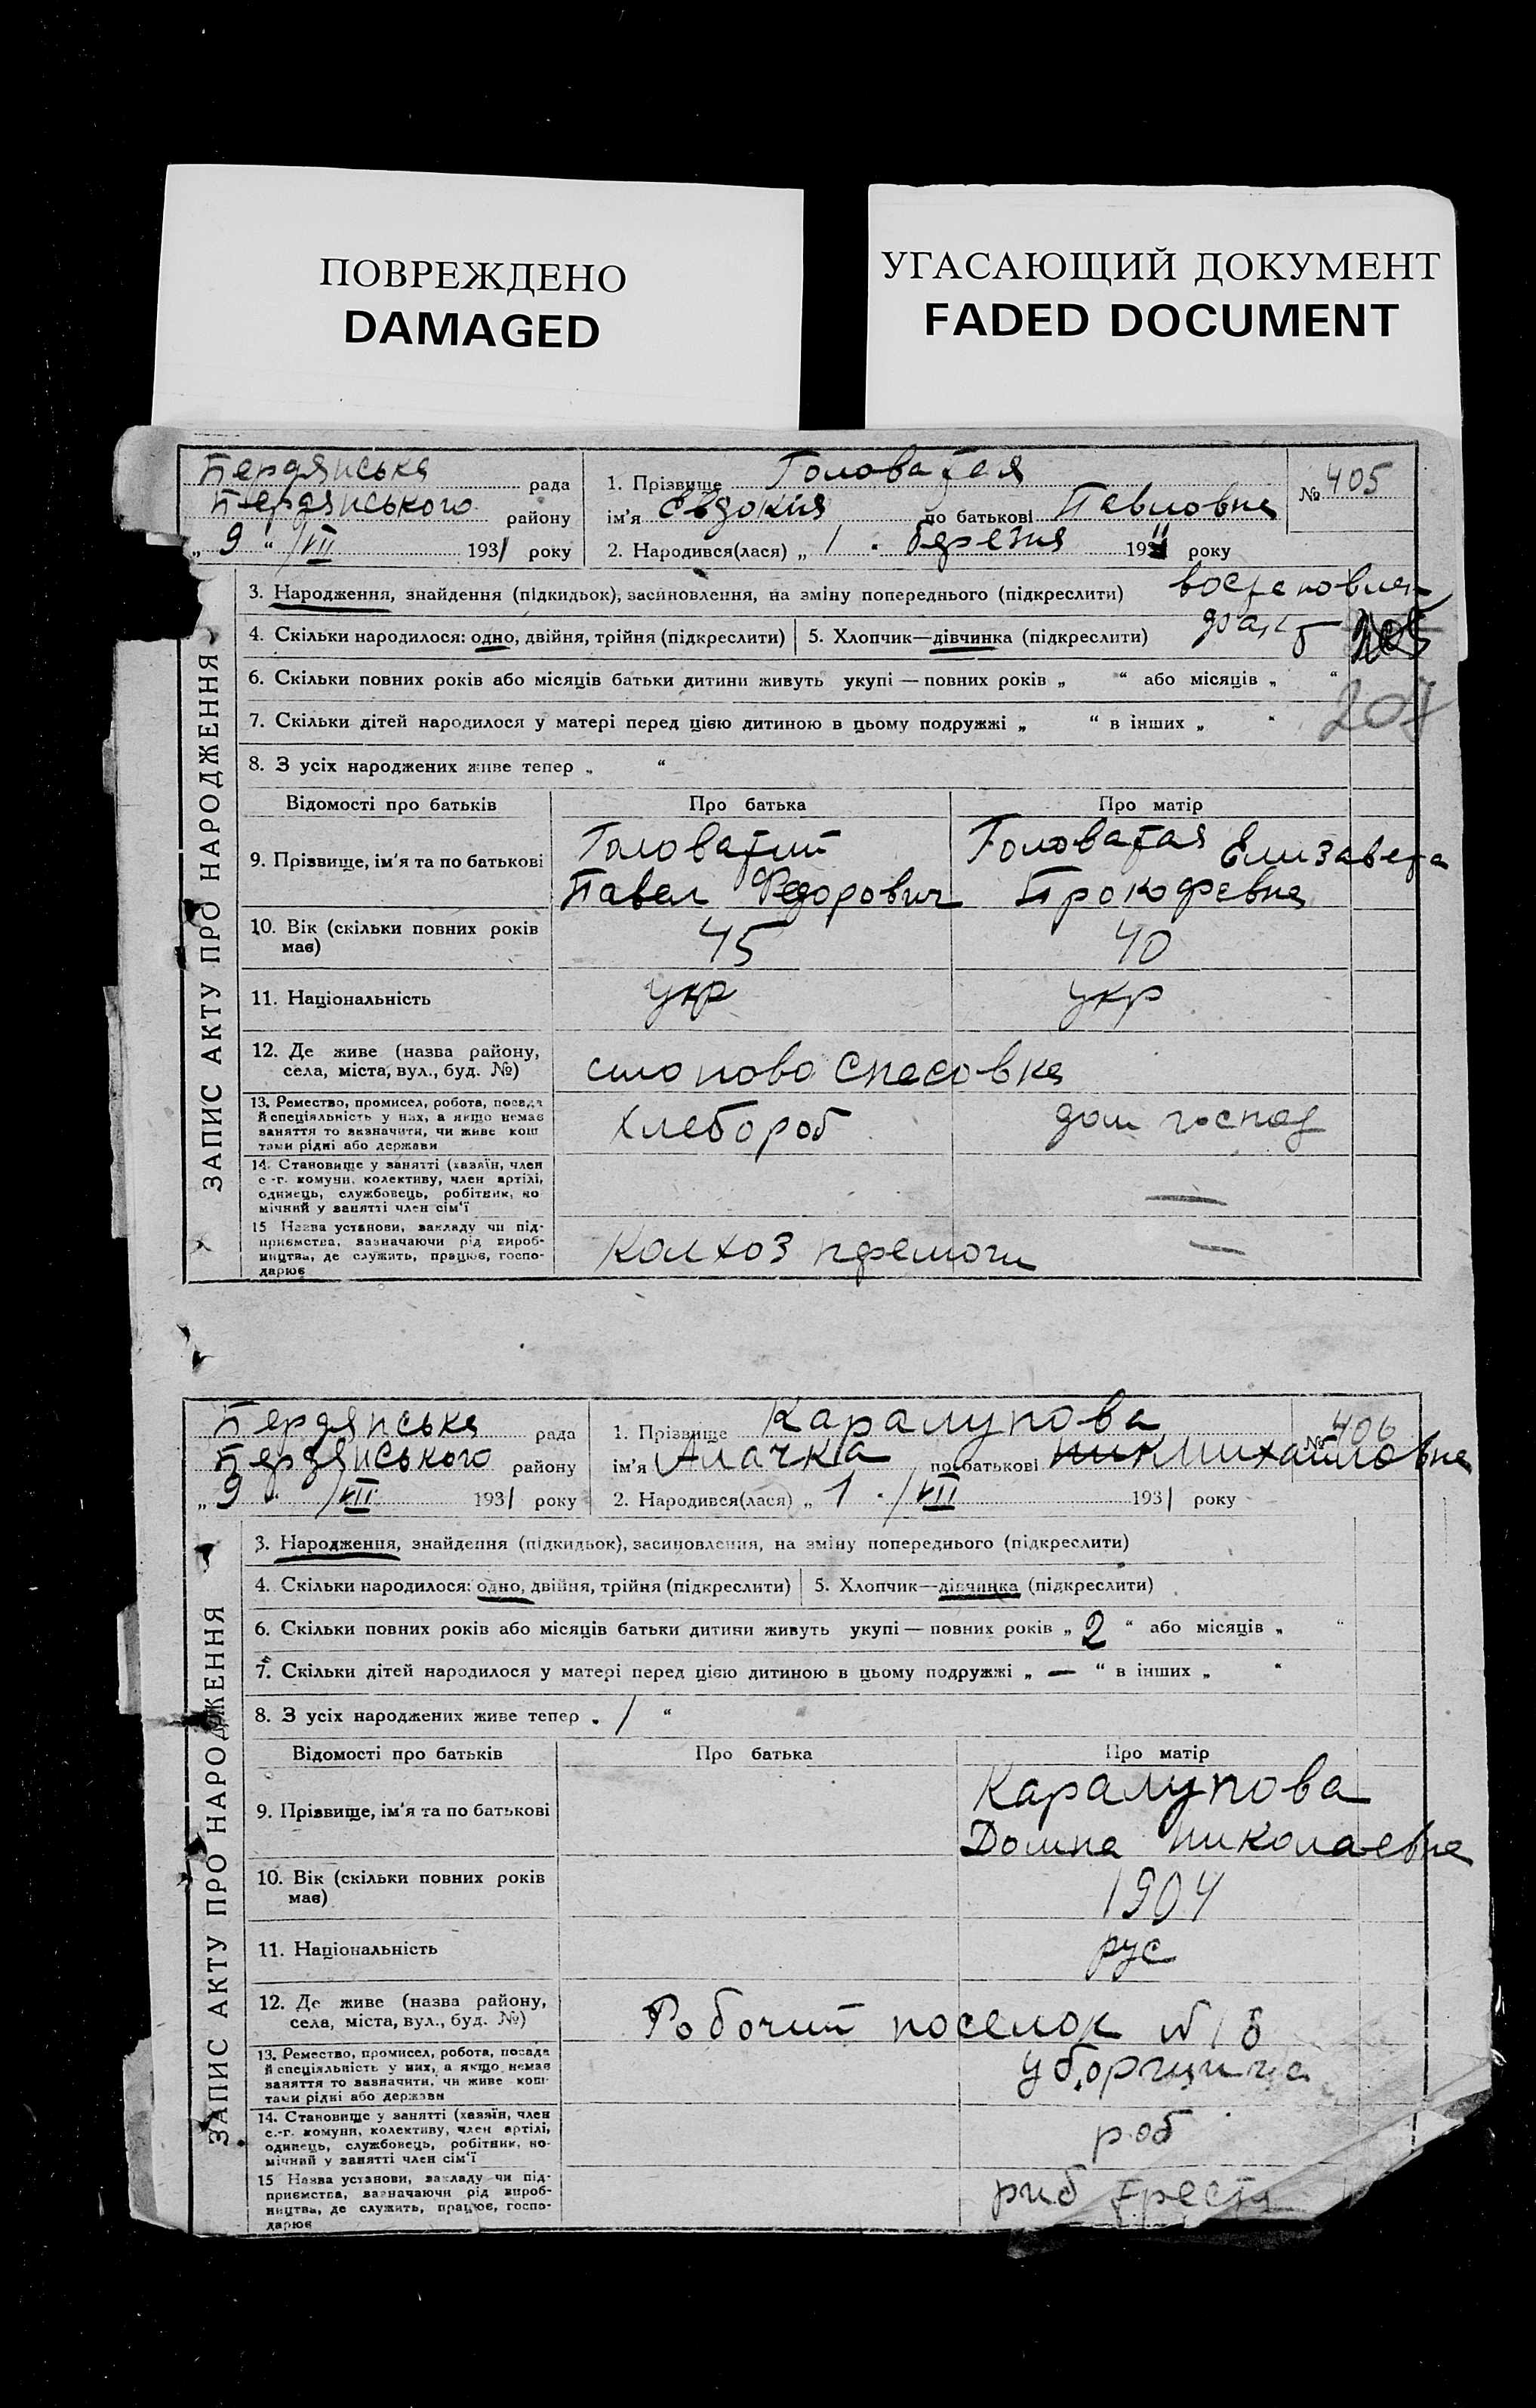 ПОВРЕЖДЕНО
DAMAGED
УГАСАЮЩИЙ ДОКУМЕНТ
FADED DOCUMENT
Бердянська рада
Бердянського району
„ 9 “ /VII 1931 року
1. Прізвище Головатая
ім'я Евдокия по батькові Павловна
2. Народився(лася) „ 1 . березня 19 року
№ 405
3. Народження, знайдення (підкидьок), засиновлення, на зміну попереднього (підкреслити)
4. Скільки народилося: одно, двійня, трійня (підкреслити) 5. Хлопчик—дівчинка (підкреслити)
6. Скільки повних років або місяців батьки дитини живуть укупі — повних років „ “ або місяців „ “
207
7. Скільки дітей народилося у матері перед цією дитиною в цьому подружжі „ “ в інших „ “
8. З усіх народжених живе тепер „ “
Відомості про батьків Про батька Про матір
9. Прізвище, ім'я та по батькові
Головатий
Павел Федорович
Головатая Елизавета
Прокофевна
10. Вік (скільки повних років має) 45 40
11. Національність укр укр
12. Де живе (назва району, села, міста, вул., буд. №)
ново Спасовка
13. Ремество, промисел, робота, посада й спеціяльність у них, а якщо немає заняття то вазначити, чи живе коштами рідні або держави
хлебороб дом господ
14. Становище у занятті (хазяїн, член с.-г. комуни, колективу, член артілі, одинець, службовець, робітник, помічний у занятті член сім'ї —
15 Назва установи, закладу чи підприємства, вазначаючи рід виробництва, де служить, працює, господарює
Колхоз премоги —
ЗАПИС АКТУ ПРО НАРОДЖЕННЯ
Бердянська рада
Бердянського району
„ 9 “ /VII 1931 року
1. Прізвище Каралупова
ім'я Алачка по батькові Михайловна
2. Народився(лася) „ 1 . /VII 1931 року
№ 406
3. Народження, знайдення (підкидьок), засиновлення, на зміну попереднього (підкреслити)
4. Скільки народилося: одно, двійня, трійня (підкреслити) 5. Хлопчик—дівчинка (підкреслити)
6. Скільки повних років або місяців батьки дитини живуть укупі — повних років „ 2 “ або місяців „ “
7. Скільки дітей народилося у матері перед цією дитиною в цьому подружжі „ — “ в інших „ “
8. З усіх народжених живе тепер „ / “
Відомості про батьків Про батька Про матір
9. Прізвище, ім'я та по батькові
Каралупова
Домна николаевна
10. Вік (скільки повних років має) 1904
11. Національність рус
12. Де живе (назва району, села, міста, вул., буд. №)
Робочий поселок №
13. Ремество, промисел, робота, посада й спеціяльність у них, а якщо немає заняття то вазначити, чи живе коштами рідні або держави
уборщица
14. Становище у занятті (хазяїн, член с.-г. комуни, колективу, член артілі, одинець, службовець, робітник, помічний у занятті член сім'ї
роб
15 Назва установи, закладу чи підприємства, вазначаючи рід виробництва, де служить, працює, господарює
риб трест
ЗАПИС АКТУ ПРО НАРОДЖЕННЯ